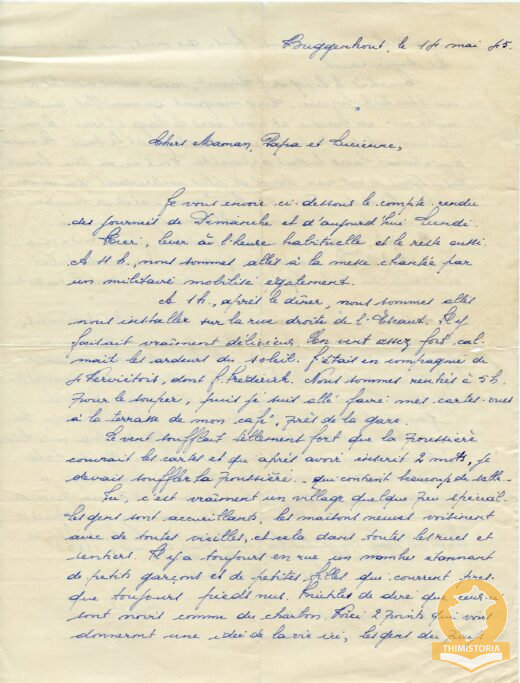 Buggenhout, le 14 mai 45.
Chers Maman, Papa et Lucienne,
Je vous envoie ci-dessous le compte-rendu
des journées de Dimanche et d'aujourd'hui Lundi.
Hier, lever à l'heure habituelle et le reste aussi.
A 11 h. nous sommes allés à la messe chantée par
un militaire mobilisé également.
A 1 h. après le dîner, nous sommes allés
nous installer sur la rive droite de l'Escaut. Il y
faisait vraiment délicieux. Un vent assez fort cal-
mait les ardeurs du soleil. J'étais en compagnie de
4 Verviétois, dont J. Frederick. Nous sommes rentrés à 5 h.
pour le souper, puis je suis allé faire mes cartes-vues
à la terrasse de mon café, près de la gare.
Le vent soufflait tellement fort que la poussière
couvrait les cartes et qu'après avoir inscrit 2 mots, je
devais souffler la poussière.. qui contient beaucoup de sable.
Ici, c'est vraiment un village quelque peu spécial.
Les gens sont accueillants, les maisons neuves voisinent
avec de toutes vieilles, et cela dans toutes les rues et
sentiers. Il y a toujours en rue un nombre étonnant
de petits garçons et de petites filles qui courrent pres-
que toujours pieds nus. Inutiles de dire que ceux-ci
sont noirs comme du charbon. Voici 2 points qui vous
donneront une idée de la vie ici, les gens du pays
THIMISTORIA